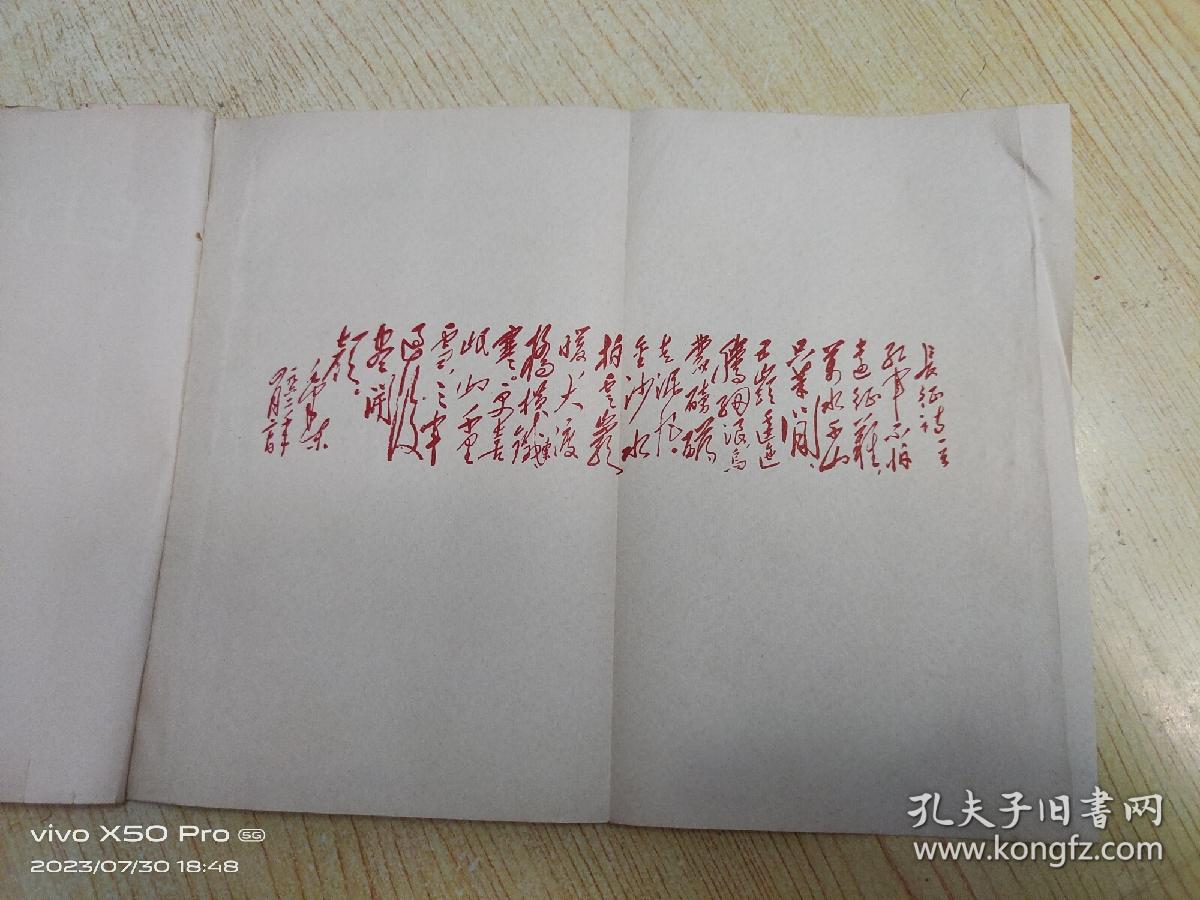 長征詩一首
紅軍不怕
遠征難，
萬水千山
只等閒。
五嶺逶迤
騰細浪，烏
蒙磅礴
走泥丸。
金沙水
拍雲巖
暖，大渡
橋橫鐵索
寒。更喜
岷山千里
雪，三軍
過後
盡開
顏。
毛澤東
一九六二年
四月二十日
vivo X50 Pro 5G
2023/07/30 18:48
孔夫子旧书网
www.kongfz.com